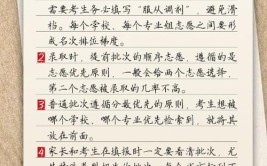 需要考生务必填写“服从调剂”，避免滑
档。每个学校、每个专业组志愿之间要形
成名次排位梯度。
2 录取时，提前批次的顺序志愿，遵循的是
志愿优先原则，一般会给两个志愿选择，
第二个志愿被录取的几率不高。
3 普通批次遵循分数优先的原则，考生想被
哪个学校、哪个专业优先检索到，就将其
放在前面。
4 家长和考生在填报时一定要看清批次，尤